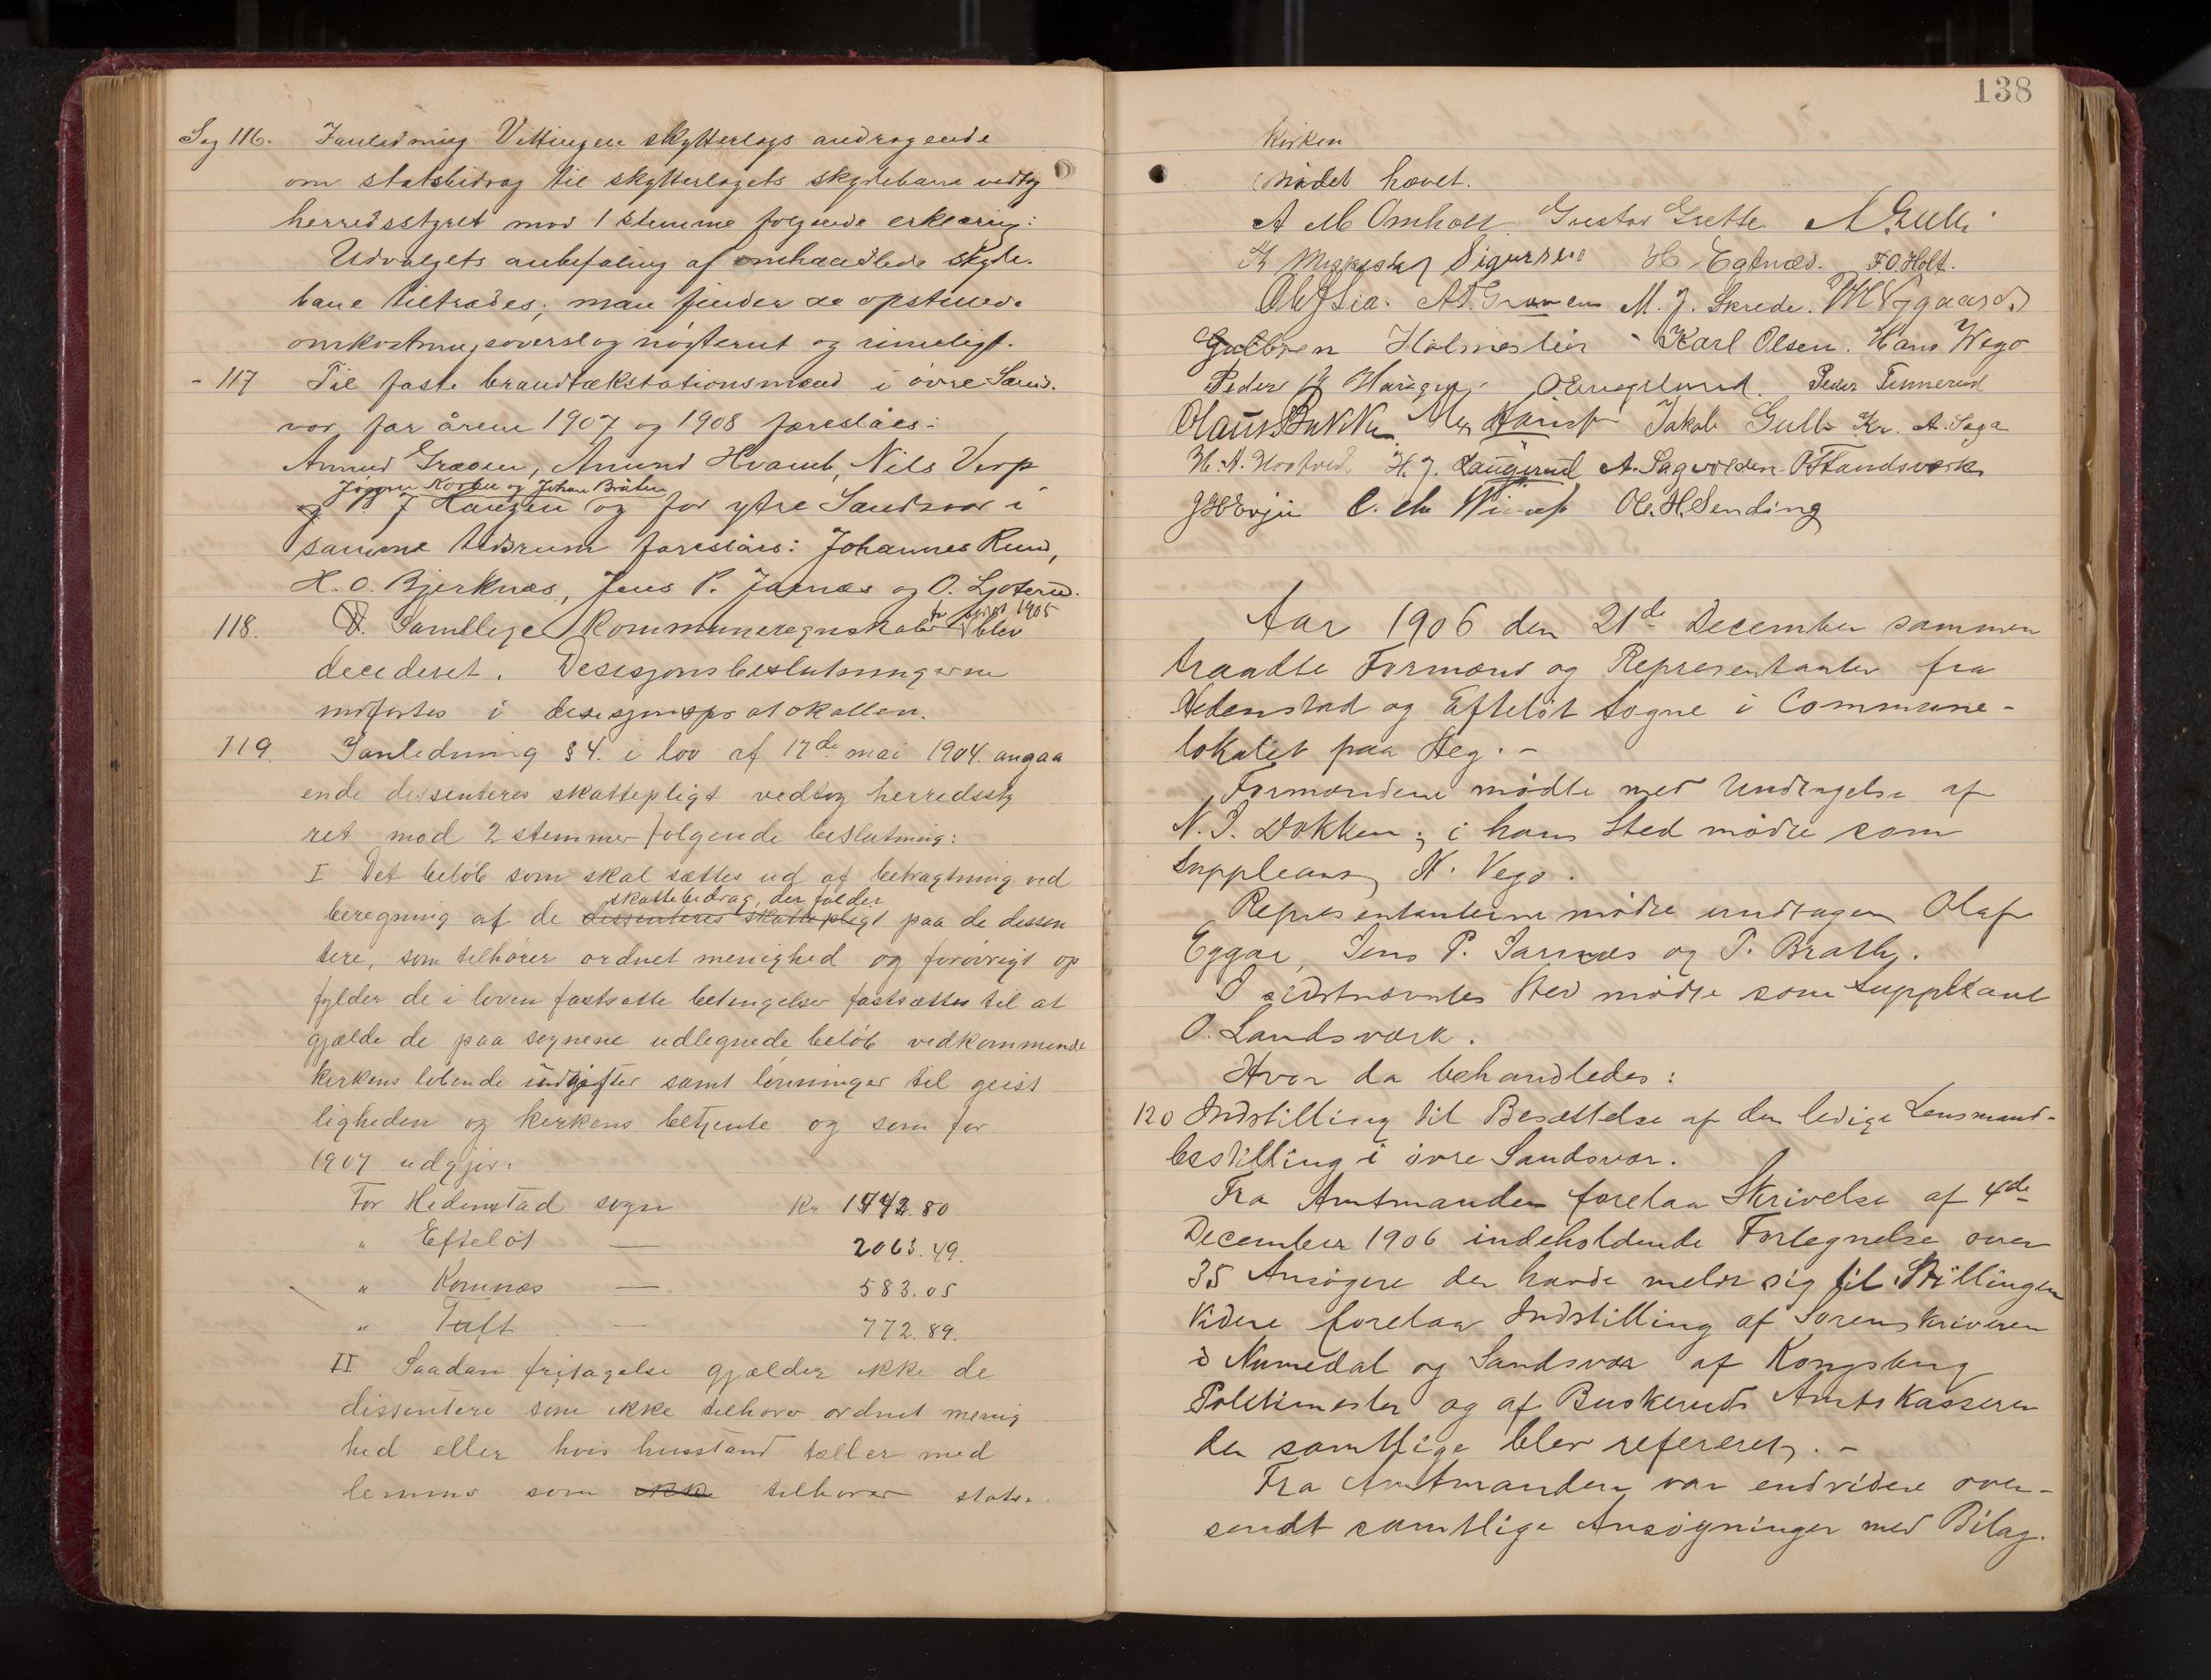 Sag 116. I anledning Vittingen skytterlags andragende
om statsbidrag til skytterlagets skydebane vedtog
herredsstyret mod 1 stemme følgende erklæring:
Udvalgets anbefaling af omhandlede skyde-
bane tiltrædes; man finder de opstillede
omkostningsoverslag nøgternt og rimeligt.
- 117 Til faste brandtakstationsmænd i øvre Sands-
vær for årene 1907 og 1908 foreslåes:
Amund Græven, Amund Hvamb, Nils Verp
Jørgen Korbu og Johan Bråten
og P. J Hangen og for ytre Sandsvær i
samme tidsrum foreslåes: Johannes Ruud,
H. O. Bjerknæs, Jens P. Jarnæs og O. Ljoterud.
for året 1905
118. Samtlige Kommuneregnskaber blev
decideret. Desisjonsbeslutningerne
indførtes i desisjonsprotokollen.
119. I anledning § 4. i lov af 17de mai 1904. angaa
ende dissenteres skattepligt vedtog herredssty
ret mod 2 stemmer følgende beslutning:
I Det beløb som skal sættes ud af betragtning ved
skattebidrag, der falder
beregning af de dissenteres skattepligt paa de dissen
tere, som tilhører ordnet menighed og forøvrigt op
fylder de i loven fastsatte betingelser fastsættes til at
gjælde de paa sognene udlegnede beløb vedkommende
kirkens løbende indgifter samt lønninger til geist
ligheden og kirkens betjente og som for
1907 udgjør:
For Hedenstad sogn Kr 1442.80
" Efteløt — 2063.49.
" Komnæs — 583.05
" Tuft — 772.89.
II Saadan fritagelse gjælder ikke de
dissentere som ikke tilhører ordnet menig
hed eller hvis husstand tæller med
lemmer som ikke tilhører stats-
138
kirken
Mødet hævet.
A M Omholt Gustav Grette A Gulli
Sigurssen H. Egtnæs. F.O. Holt.
Ole J Lia. A.T. Græven M. J. Skrede. Nygaard
Gulbren Holmeslien Karl Olsen. Hans Wego
Peder Hangen. O Engelund. Peder Tennerud
Olaus Bakke Jakob Gulli Kr. A. Saga
H. A. Hostvedt. H. J. Laugerud A. Sagvolden O Landsverk
J H Evju C. Ole H. Sending
Aar 1906 den 21de December sammen
traadte Formænd og Representanter fra
Hedenstad og Efteløt Sogne i Commune-
lokalet paa Heg. -
Formændene mødte med Undtagelse af
N. I. Dokken; i hans Sted mødte som
Suppleant H. Vego.
Representanterne mødte undtagen Olaf
Eggar, Jens P. Jarnæs og P. Brathy.
I sidstnævntes Sted mødte som Suppleant
O. Landsværk.
Hvor da behandledes:
120 Indstilling til Besættelse af den ledige Lensmands-
bestilling i øvre Sandsvær.
Fra Amtmanden forelaa Skrivelse af 4de
December 1906 indeholdende Fortegnelse over
35 Ansøgere der havde meldt sig til Stillingen
Videre forelaa Indstilling af Sorenskriveren
i Numedal og Sandsvær af Kongsberg
Politimester og af Buskeruds Amtskasserer
der samtlige blev refereret. -
Fra Amtmanden var endvidere over-
sendt samtlige Ansøgninger med Bilag.